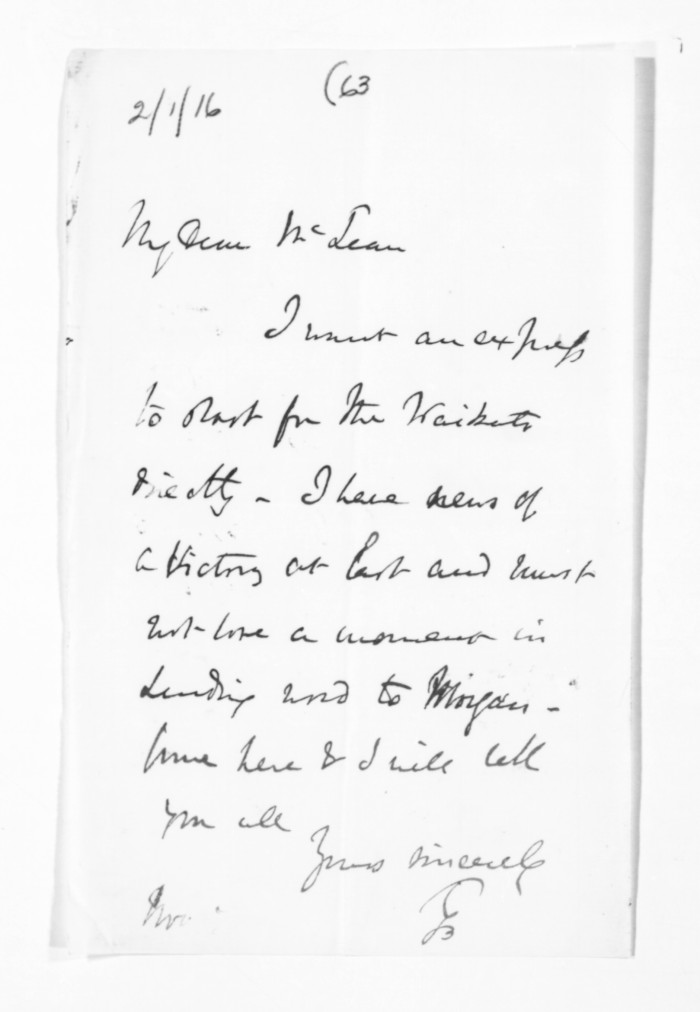 (63
2/1/16
My Dear McLean
I want an express
to start for the Waikato
directly - I have news of
a victory at last and must
not lose a moment in
sending word to Morgan -
Come here & I will tell
you all
Yours sincerely